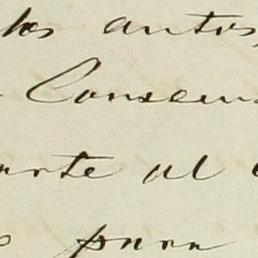 los autos
Consecu
arte al
para